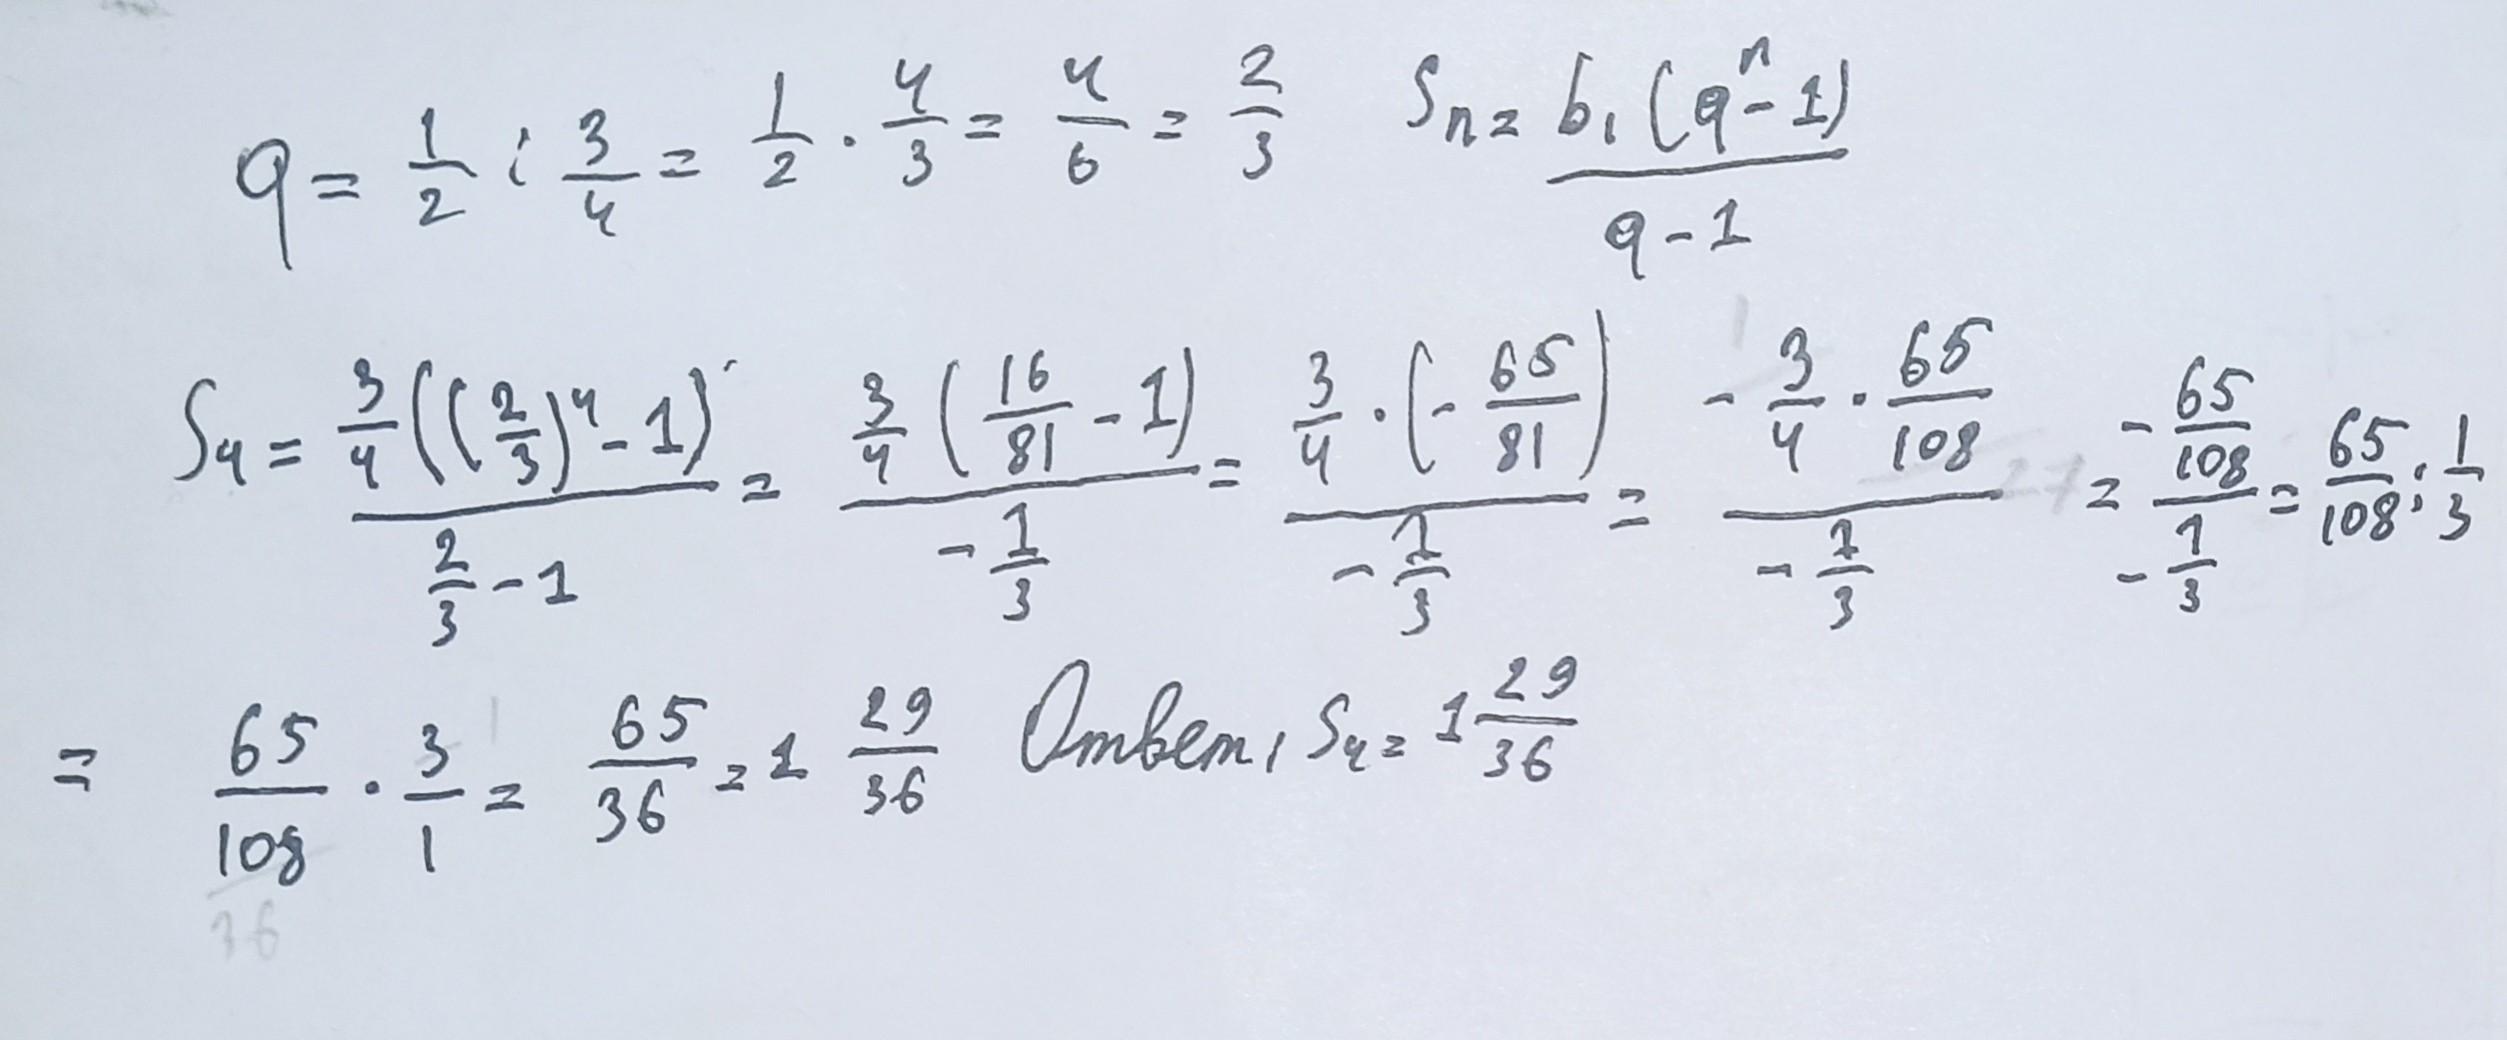 q = 1/2 : 3/4 = 1/2 · 4/3 = 4/6 = 2/3 Sn = b1(q^n - 1)/(q - 1)
S4 = 3/4((2/3)^4 - 1)/(2/3 - 1) = 3/4(16/81 - 1)/(-1/3) = 3/4 · (-65/81)/(-1/3) = -3/4 · 65/108/(-1/3) = -65/108/(-1/3) = 65/108 : 1/3
= 65/108 · 3/1 = 65/36 = 1 29/36 Ответ, S4 = 1 29/36
36